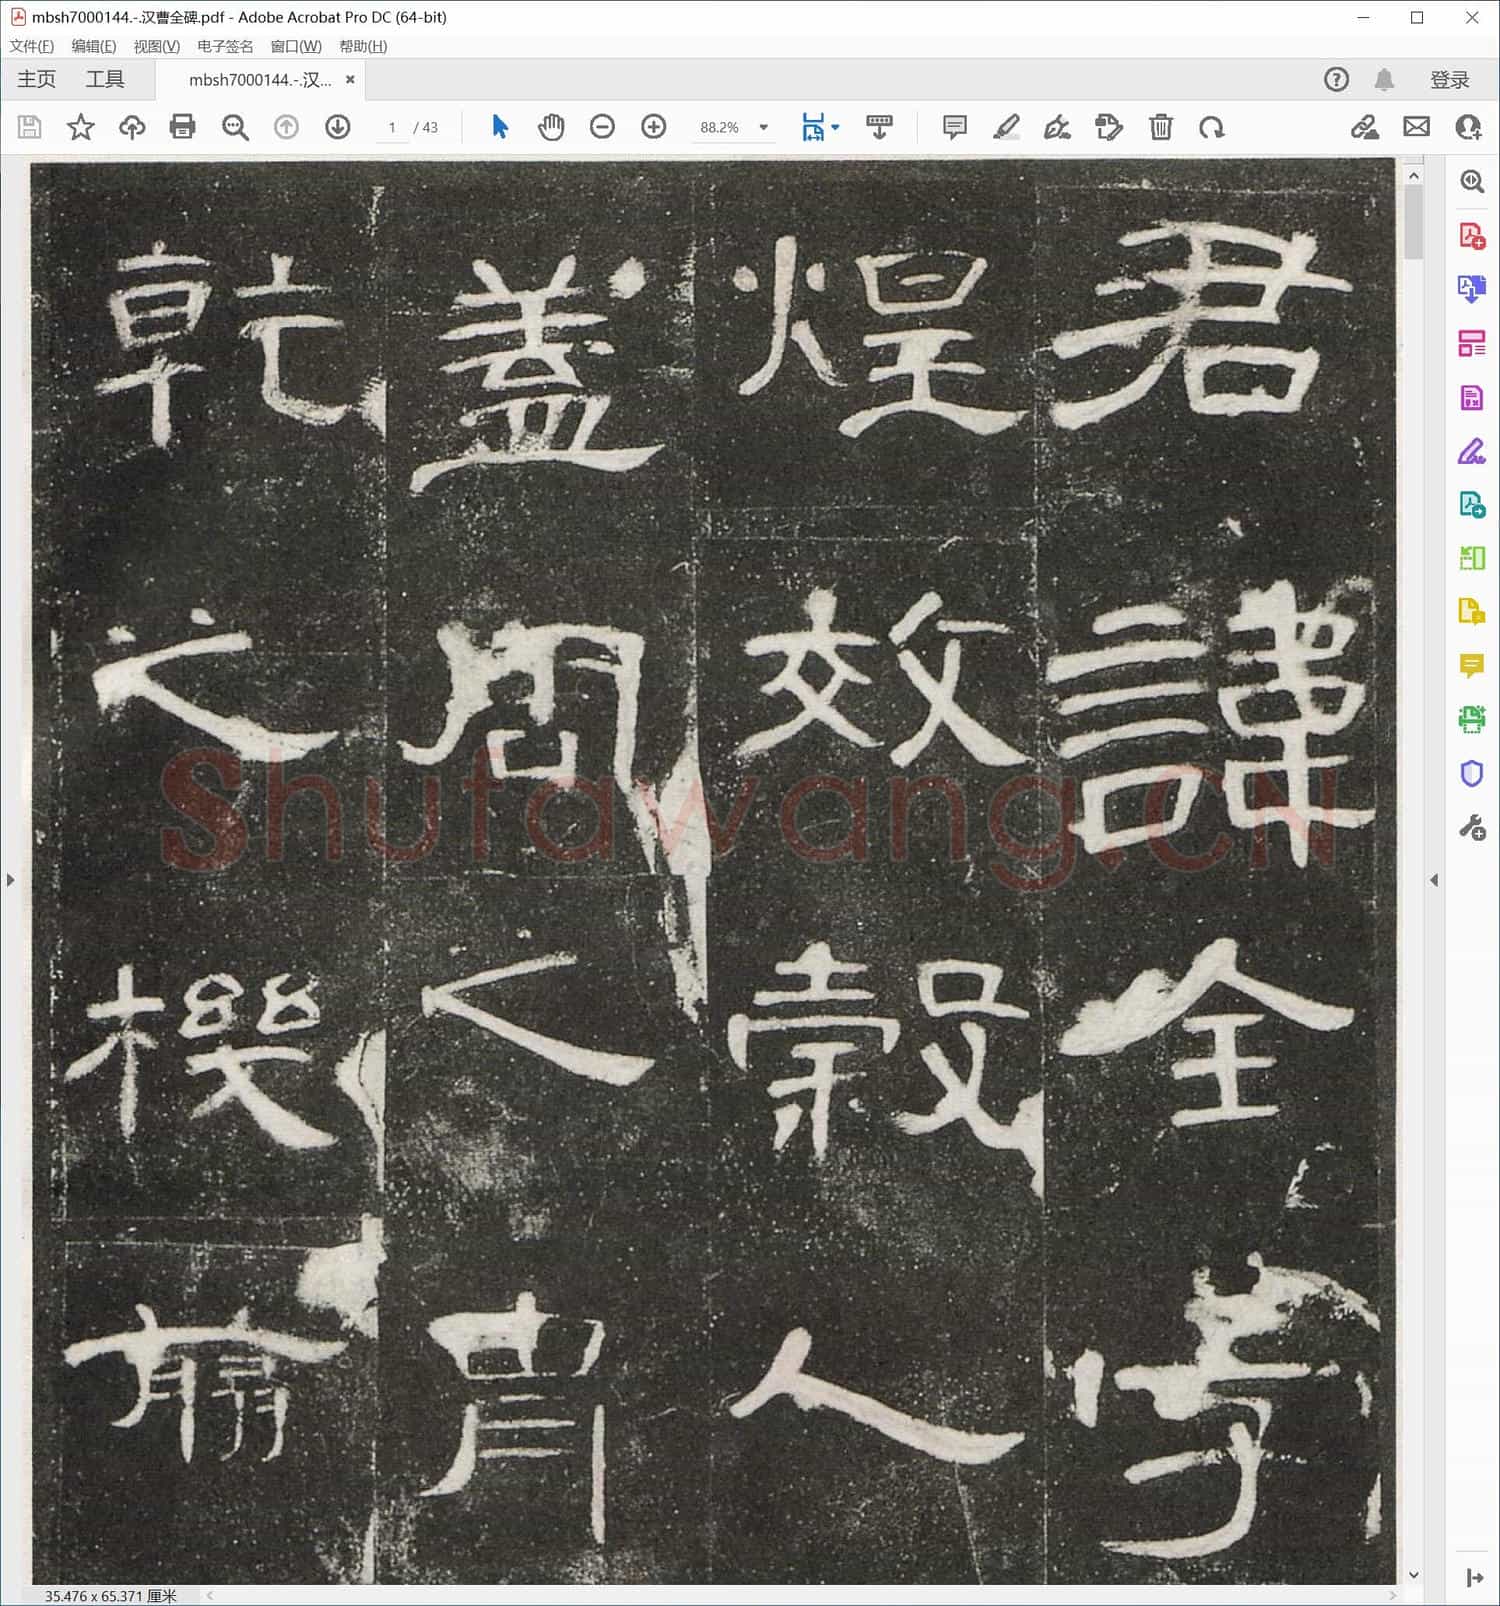 mbsh7000144.-.汉曹全碑.pdf - Adobe Acrobat Pro DC (64-bit)
文件(F) 编辑(E) 视图(V) 电子签名 窗口(W) 帮助(H)
主页 工具 mbsh7000144.-.汉... 登录
1 / 43 88.2%
君諱全字
煌效穀人
蓋周之胄
乾之機𠔃
Shufawang.CN
35.476 x 65.371 厘米